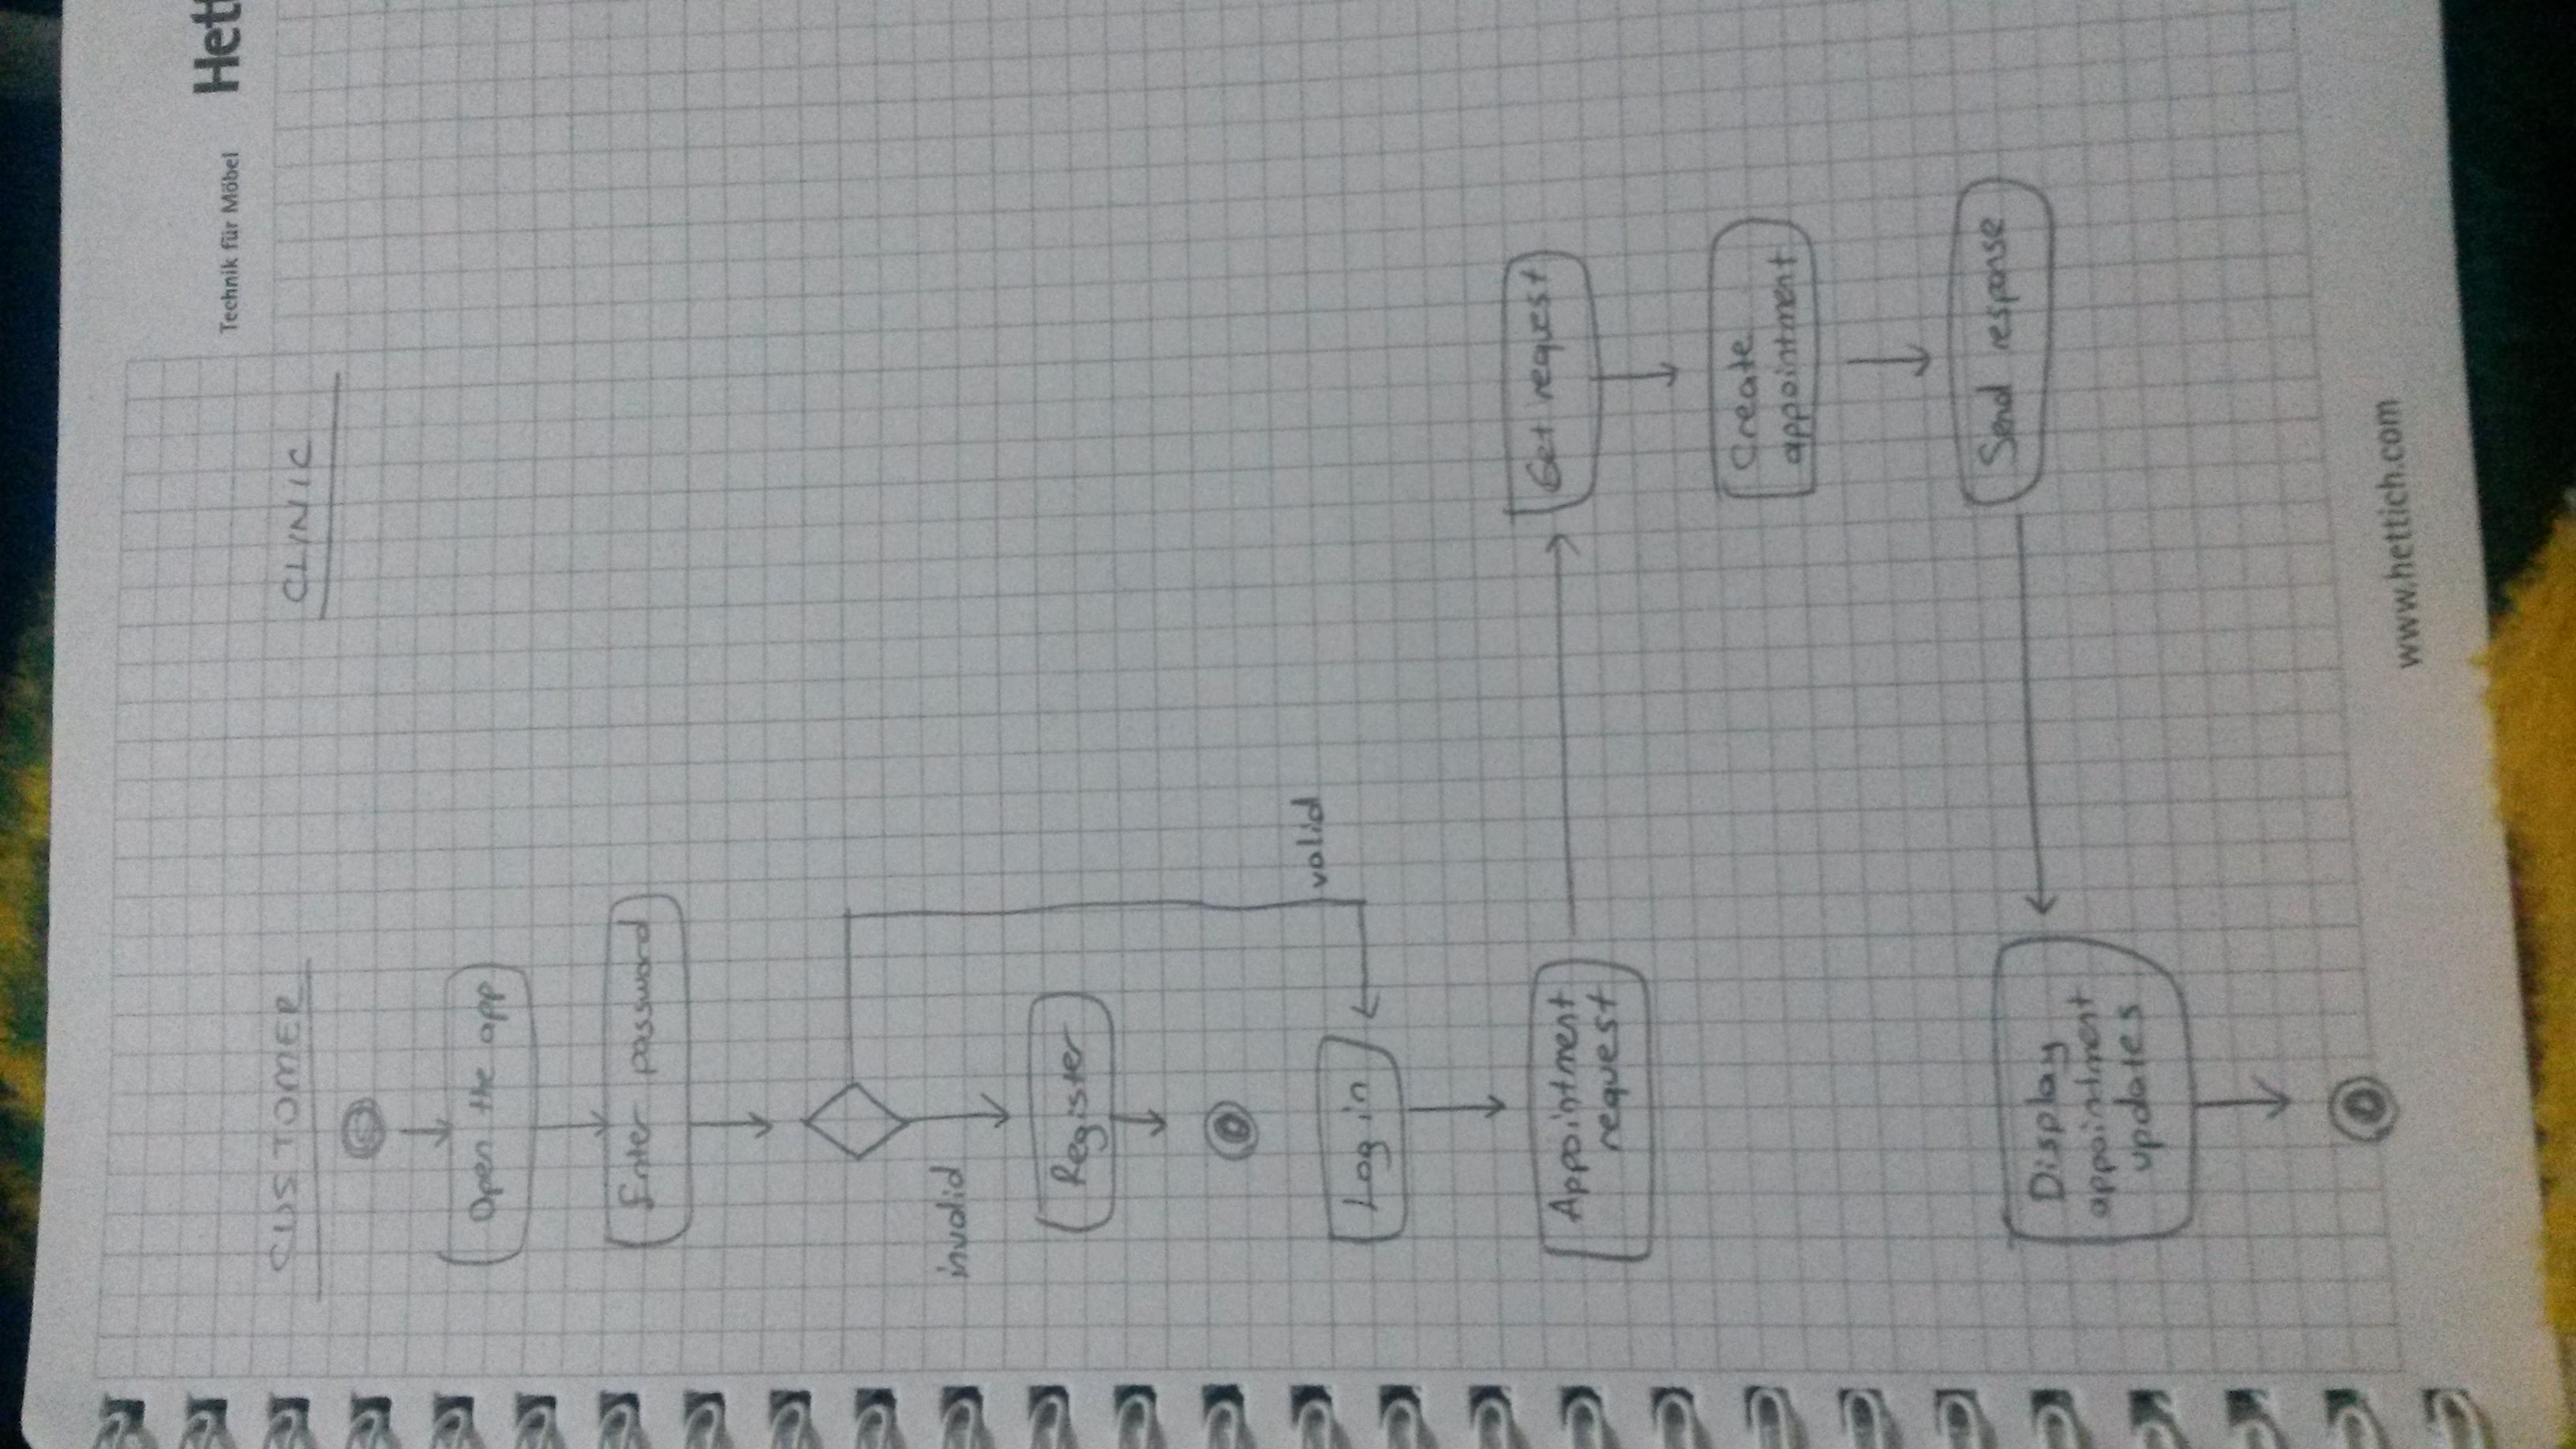 Technik für Möbel Hett
CUSTOMER
CLINIC
Open the app
Enter password
invalid
Register
valid
Log in
Appointment
request
Get request
Create
appointment
Send response
Display
appointment
updates
www.hettich.com